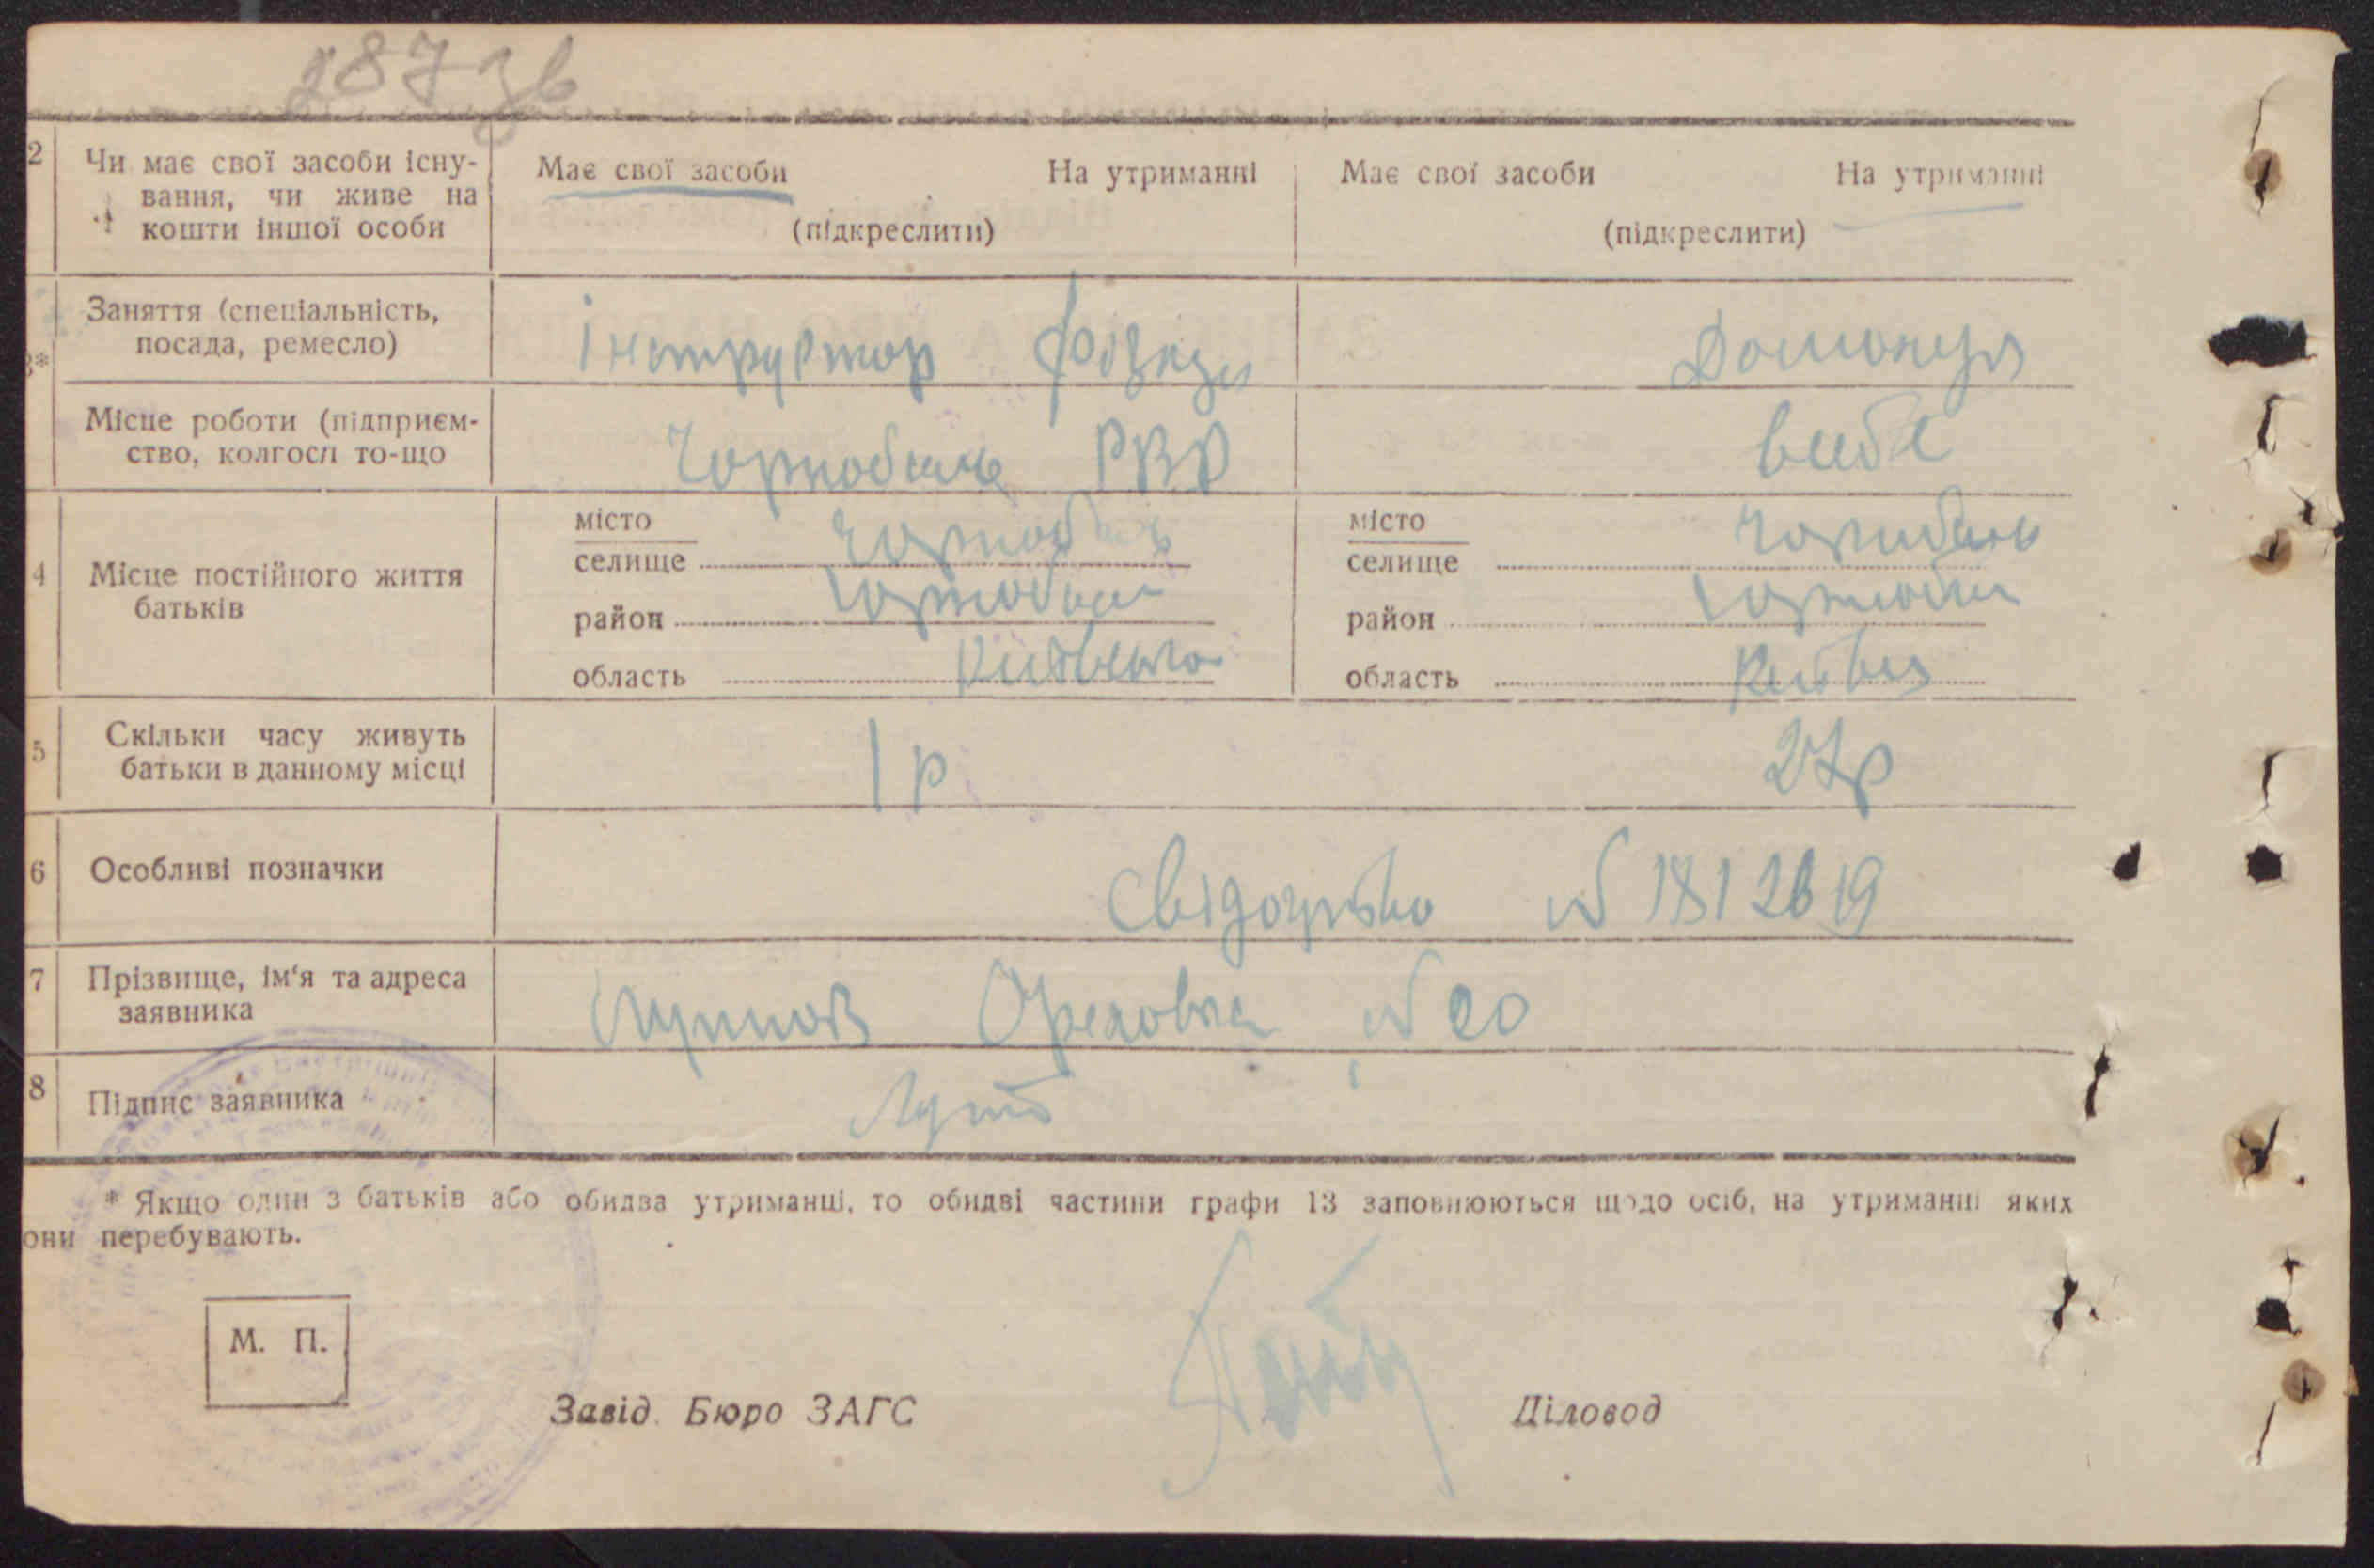 287 зв
2 Чи має свої засоби існу-
вання, чи живе на
кошти іншої особи
Має свої засоби На утриманні
(підкреслити)
Має свої засоби На утриманні
(підкреслити)
Заняття (спеціальність,
посада, ремесло)
інструктор фізкул
Домохуз
Місце роботи (підприєм-
ство, колгосп то-що
Чорнобиль РВК
4 Місце постійного життя
батьків
місто
селище Чорнобиль
район Чорнобил
область Київська
місто
селище Чорнобиль
район Чорнобил
область
5 Скільки часу живуть
батьки в данному місці
1 р 27р
6 Особливі позначки
Свідоцтво № 1812619
7 Прізвище, ім‘я та адреса
заявника
№ 20
8 Підпис заявника
* Якщо один з батьків або обидва утриманці, то обидві частини графи 13 заповнюються щодо осіб, на утриманні яких
они перебувають.
М. П.
Завід. Бюро ЗАГС Діловод